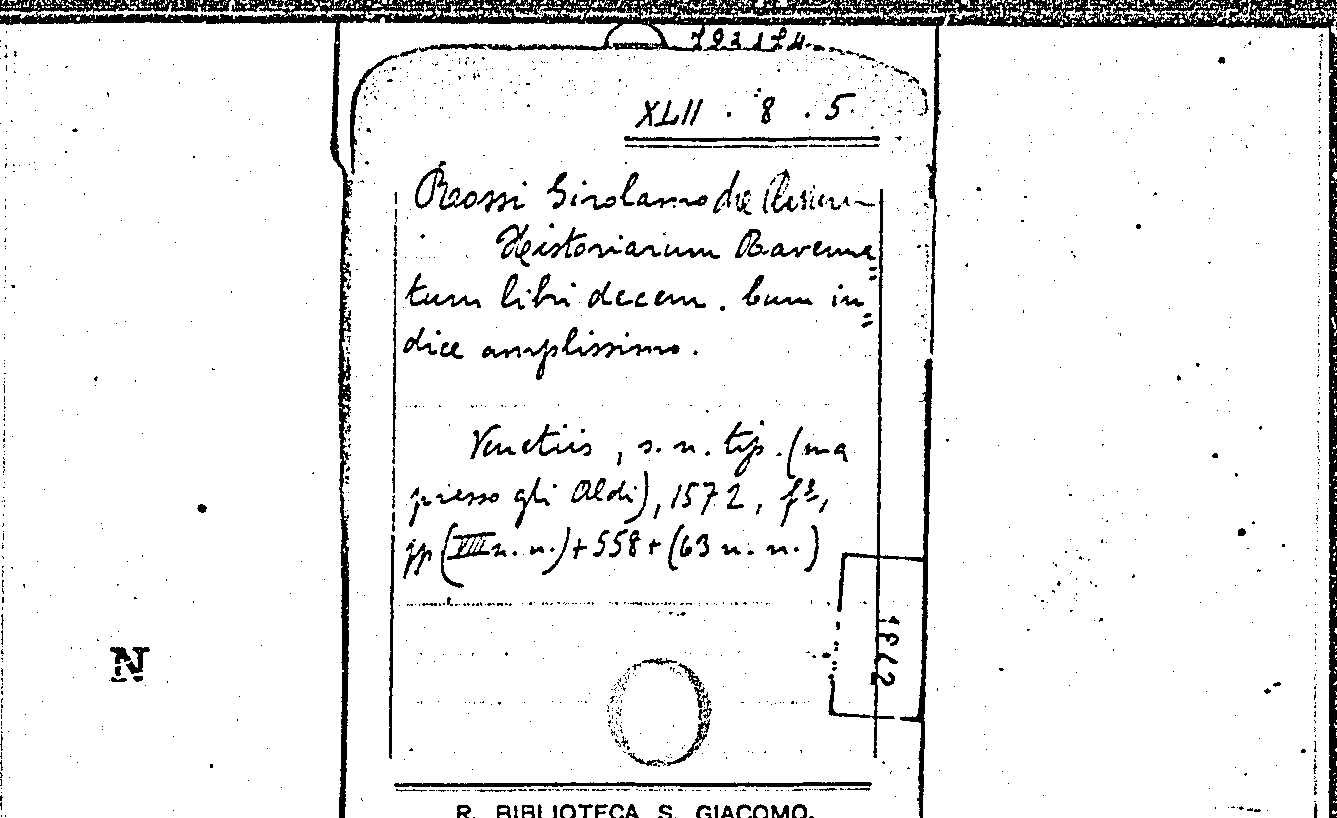 XLII . 8 . 5
Rossi Girolamo
Historiarum Ravenna=
tum libri decem. Cum in=
dice amplissimo.
Venetiis, s. n. tip. (ma
presso gli Aldi), 1572, f°,
pp (VIII n. n.) + 558 + (63 n. n.)
N
R. BIBLIOTECA S. GIACOMO.